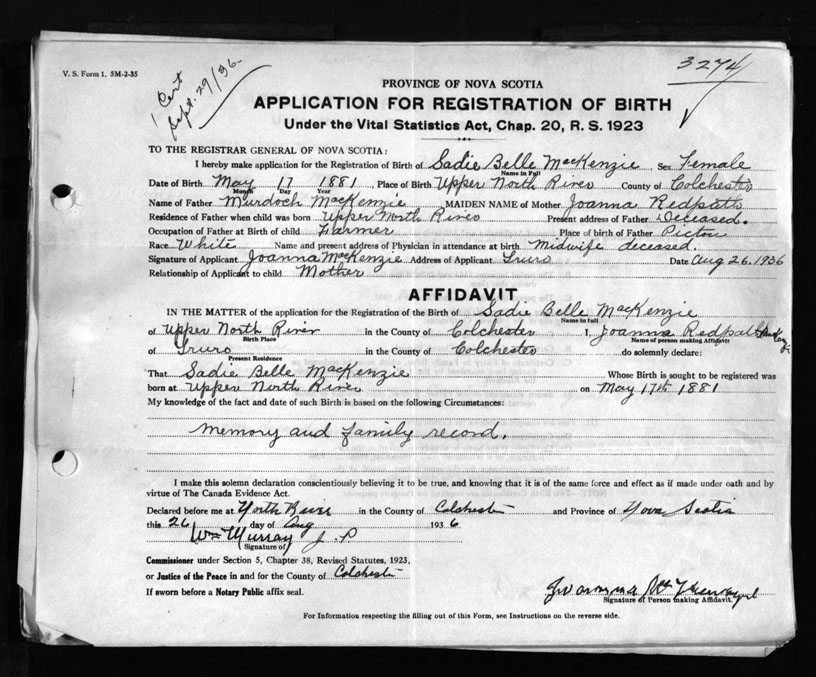 V. S. Form 1. 5M-2-35
1 Cert
Sept. 29/36
3274
PROVINCE OF NOVA SCOTIA
APPLICATION FOR REGISTRATION OF BIRTH
Under the Vital Statistics Act, Chap. 20, R. S. 1923
TO THE REGISTRAR GENERAL OF NOVA SCOTIA:
I hereby make application for the Registration of Birth of Sadie Belle MacKenzie, Sex Female
Name in Full
Date of Birth May 17 1881, Place of Birth Upper North River County of Colchester
Month Day Year
Name of Father Murdoch MacKenzie MAIDEN NAME of Mother Joanna Redpath
Residence of Father when child was born Upper North River Present address of Father Deceased.
Occupation of Father at Birth of Child Farmer Place of birth of Father Pictou
Race White Name and present address of Physician in attendance at birth Midwife deceased.
Signature of Applicant Joanna MacKenzie Address of Applicant Truro Date Aug 26. 1936
Relationship of Applicant to child Mother
AFFIDAVIT
IN THE MATTER of the application for the Registration of the Birth of Sadie Belle MacKenzie
Name in full
of Upper North River in the County of Colchester I, Joanna Redpath
Birth Place Name of person making Affidavit
of Truro in the County of Colchester do solemnly declare:
Present Residence
That Sadie Belle MacKenzie Whose Birth is sought to be registered was
born at Upper North River on May 17th 1881
My knowledge of the fact and date of such Birth is based on the following Circumstances:
Memory and family record.
I make this solemn declaration conscientiously believing it to be true, and knowing that it is of the same force and effect as if made under oath and by
virtue of The Canada Evidence Act.
Declared before me at North River in the County of Colchester and Province of Nova Scotia
this 26 day of Aug 1936
Wm Murray J. P
Signature of
Commissioner under Section 5, Chapter 38, Revised Statutes, 1923,
or Justice of the Peace in and for the County of Colchester
If sworn before a Notary Public affix seal.
Signature of Person making Affidavit.
For Information respecting the filling out of this Form, see Instructions on the reverse side.